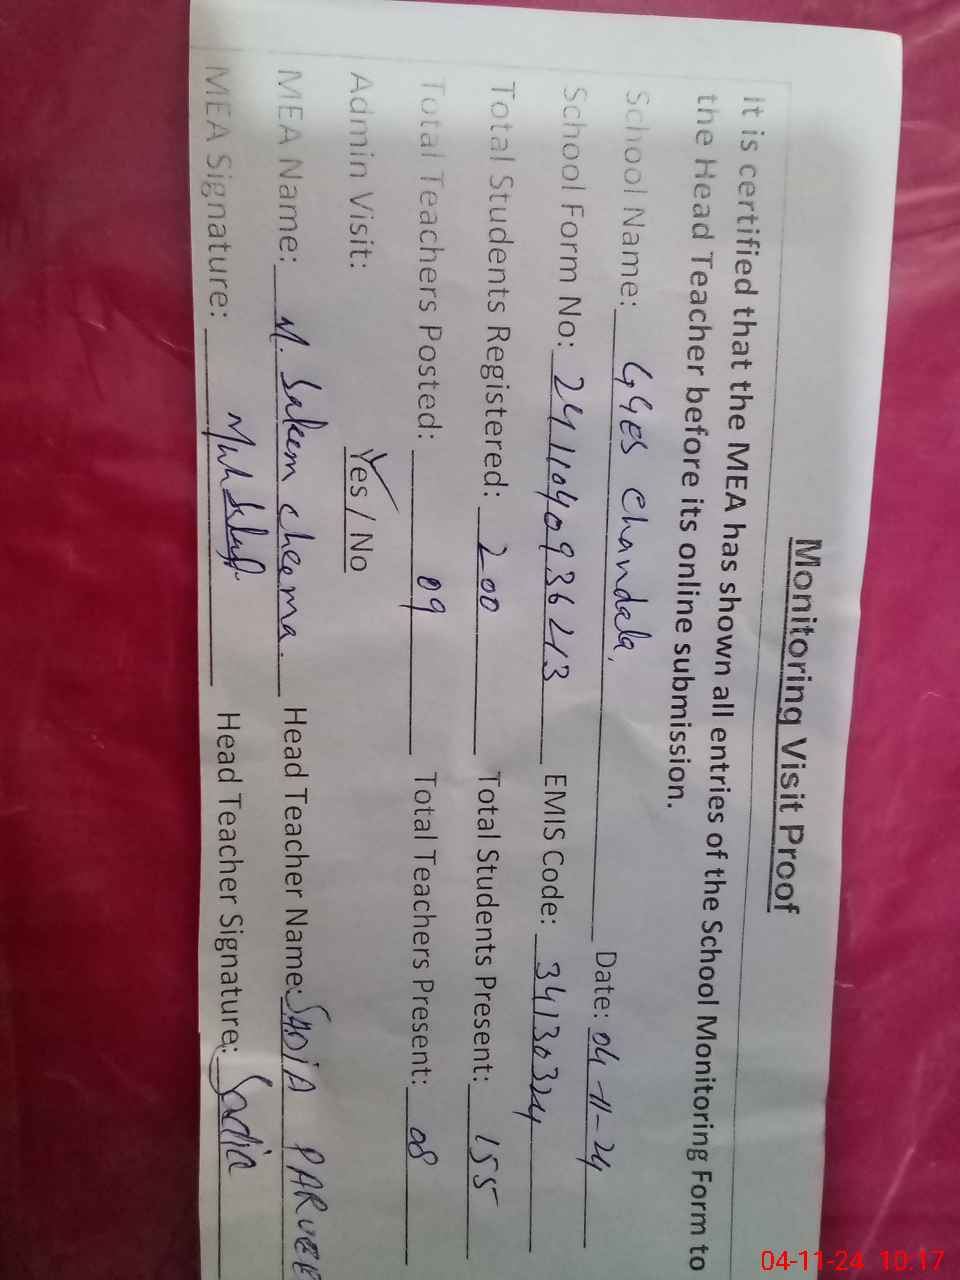 Monitoring Visit Proof
It is certified that the MEA has shown all entries of the School Monitoring Form to
the Head Teacher before its online submission.
School Name: GGES Chandala, Date: 04-11-24
School Form No: EMIS Code: 34130324
Total Students Registered: 200 Total Students Present: 155
Total Teachers Posted: 09 Total Teachers Present: 08
Admin Visit: Yes / No
MEA Name: M. Saleem cheema. Head Teacher Name: SADIA PARVEE
MEA Signature: Head Teacher Signature: Sadia
04-11-24 10:17